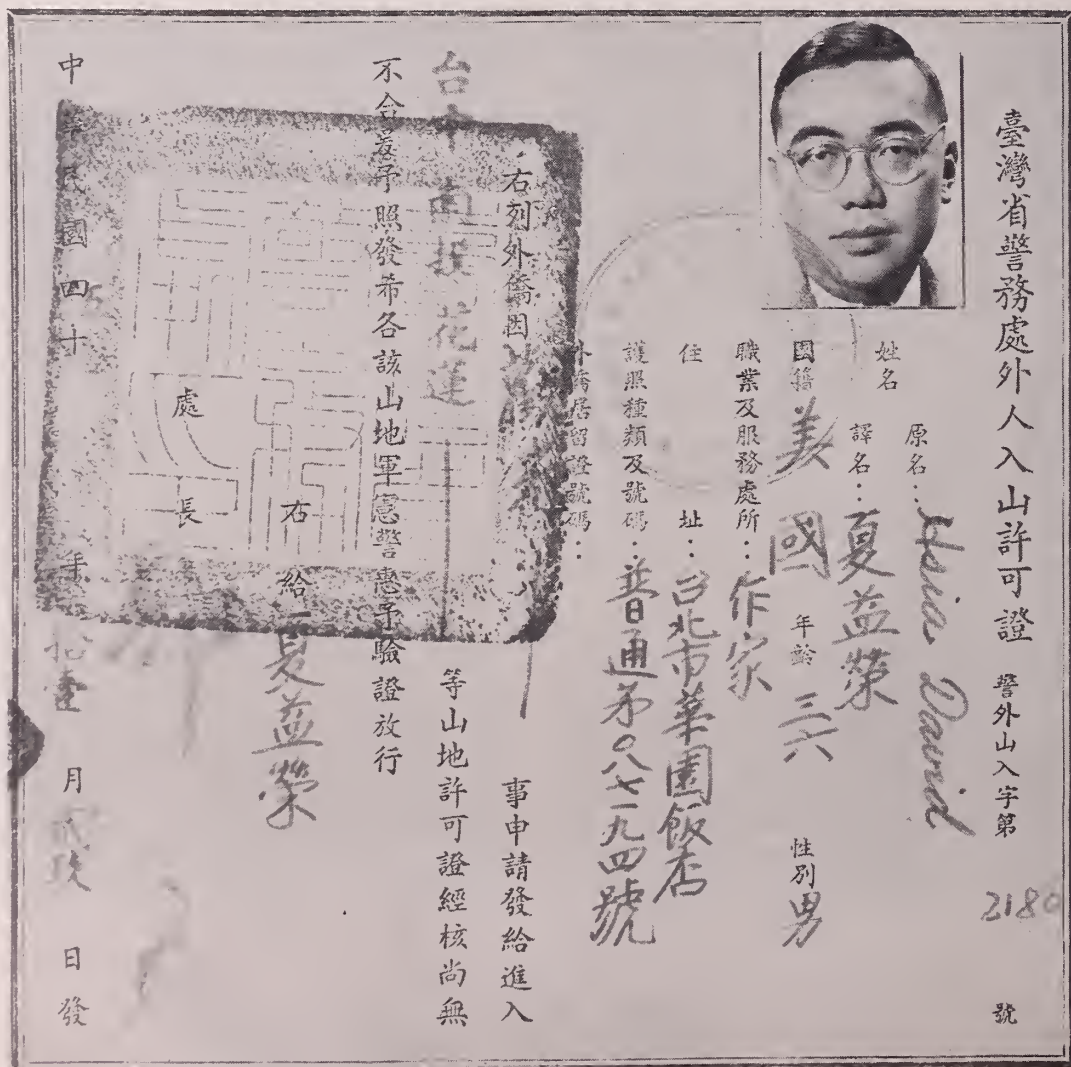 臺灣省警務處外人入山許可證 警外山入字第 2180 號
姓名 原名:Hsia David
譯名:夏益榮
國籍 美國 年齡 三六 性別 男
職業及服務處所:作家
住址:台北市華園飯店
護照種類及號碼:普通第〇八七一九四號
外僑居留證號碼:
右列外僑因 事申請發給進入
台中 南投 花蓮 等山地許可證經核尚無
不合爰予照發希各該山地軍憲警惠予驗證放行
右給 夏益榮
處長
中華民國四十 年 拾壹 月 貳玖 日發